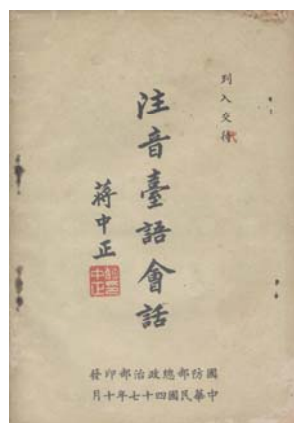 列入交待
注音臺語會話
蔣中正
國防部總政治部印發
中華民國四十七年十月